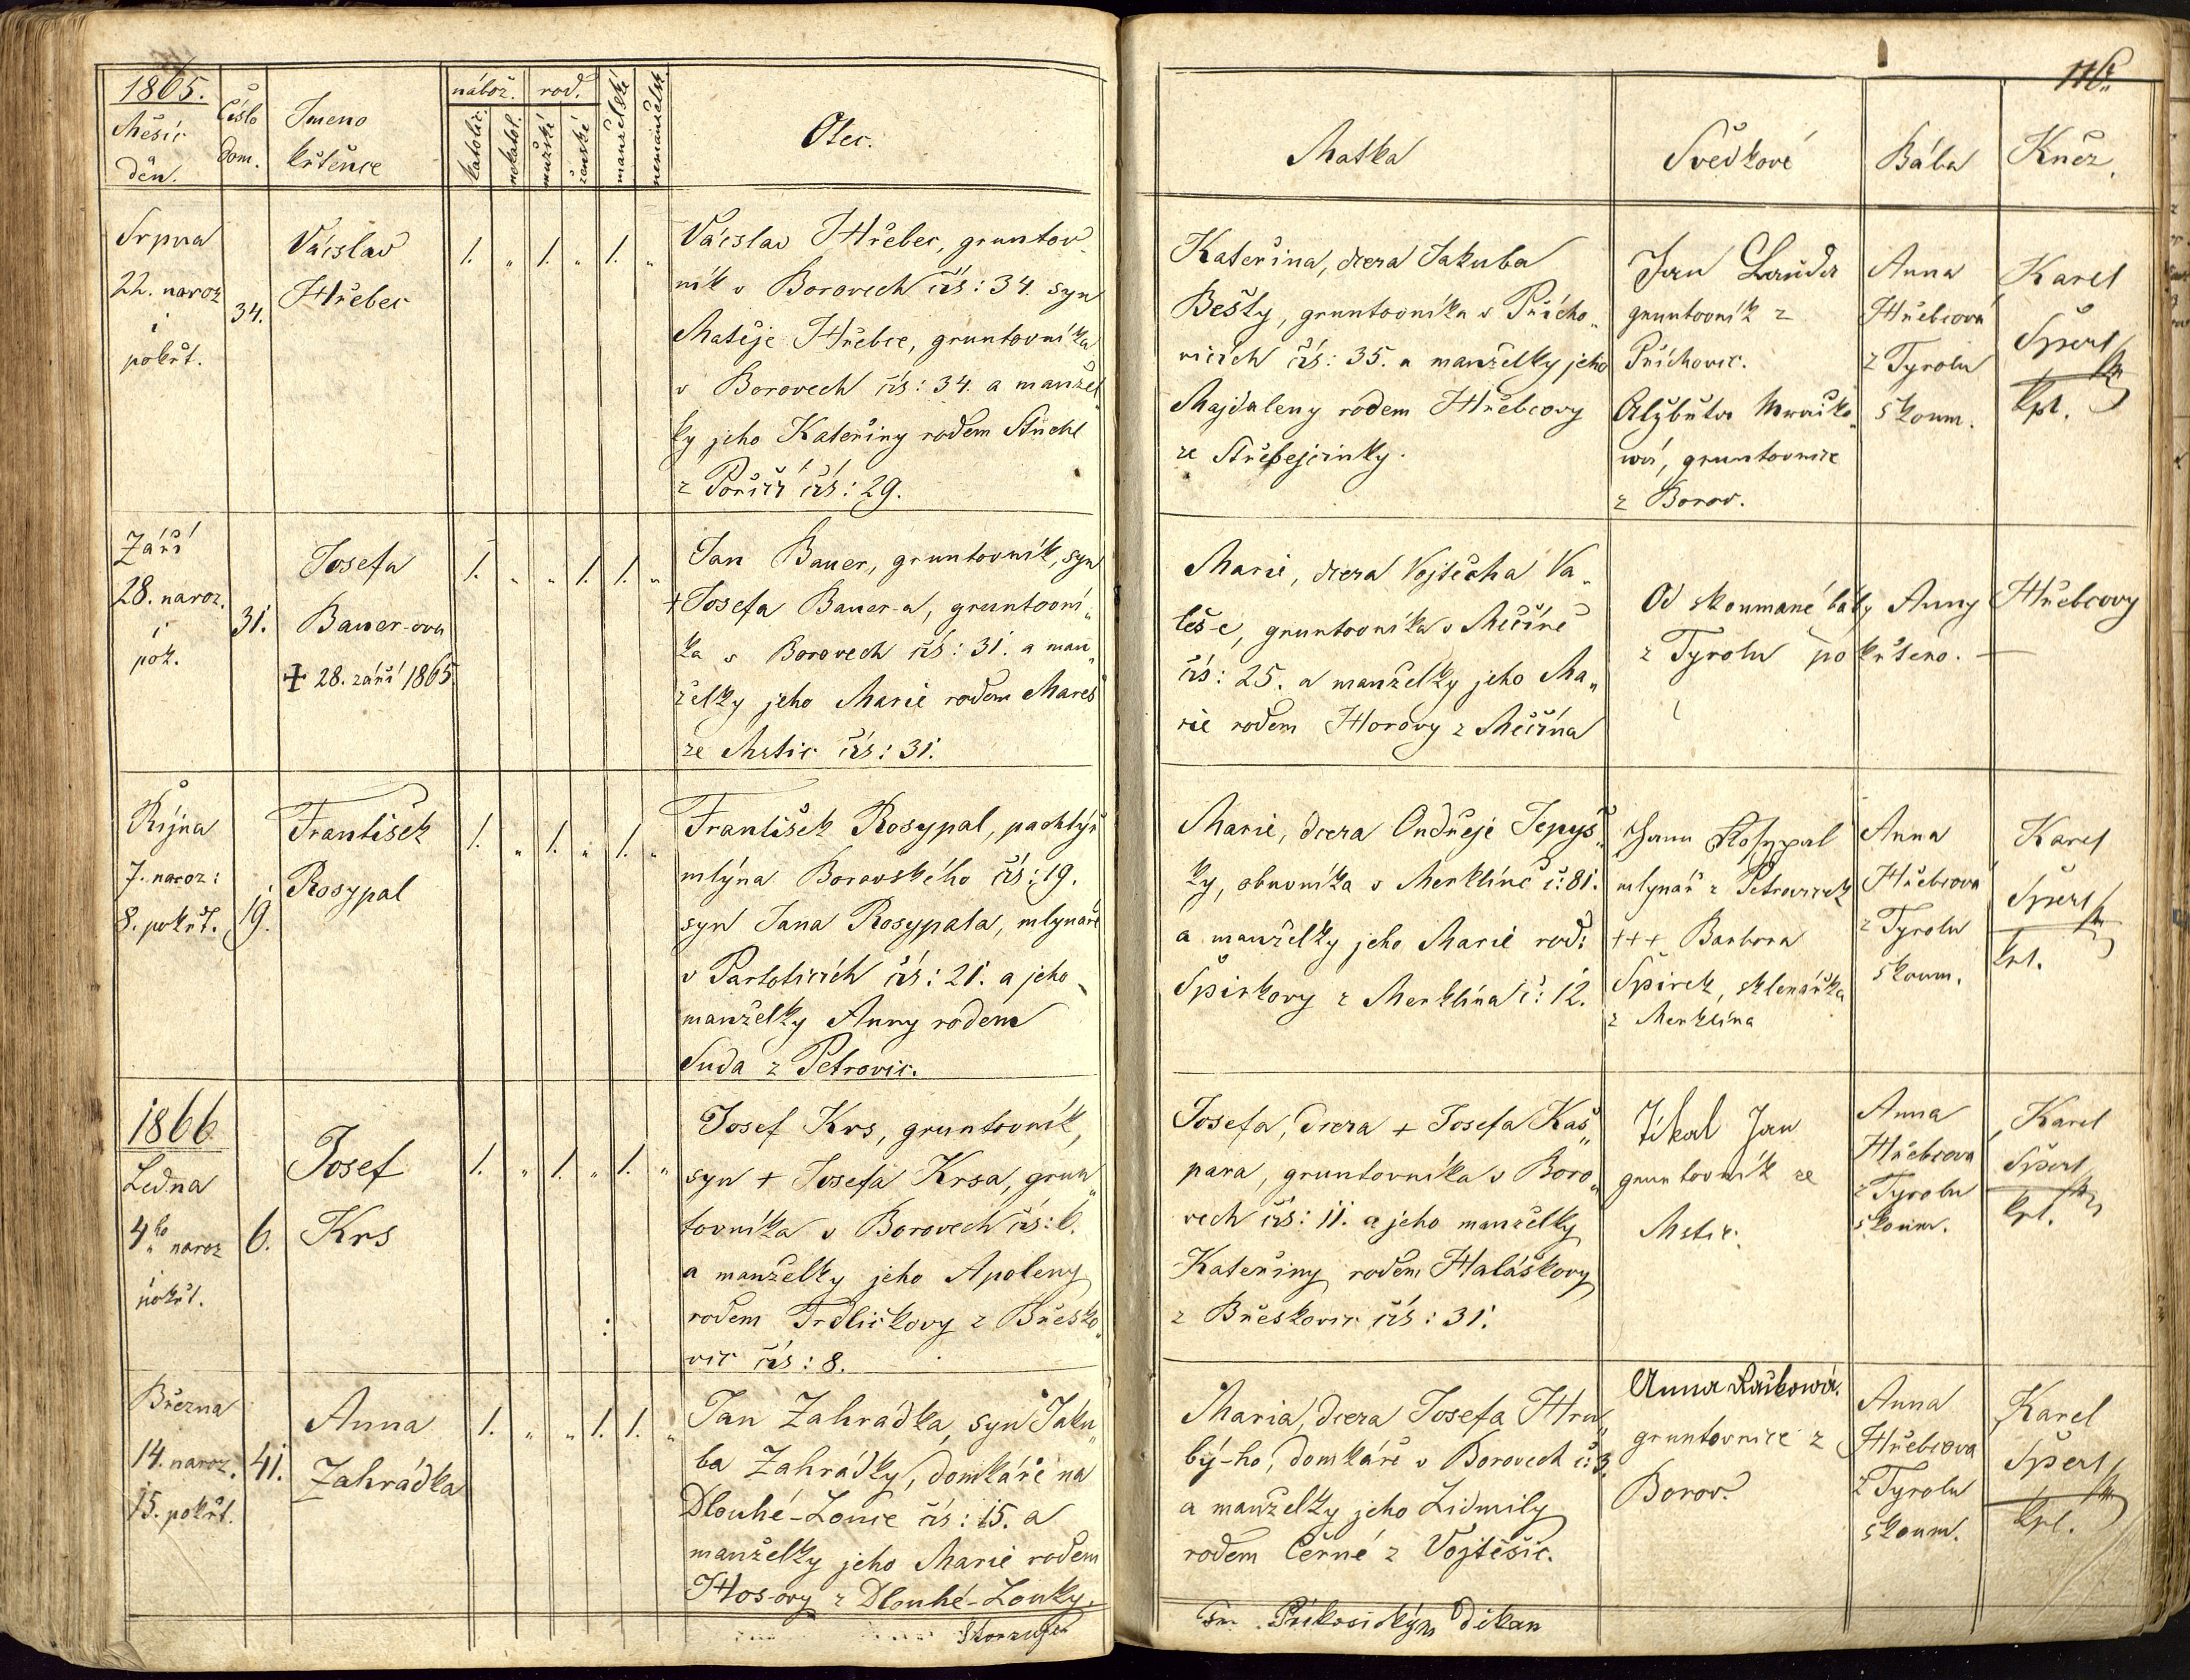 1865.
Měsíc
děn.
Číslo
dom.
Jmeno
křtěnce
nábož.
rod.
katolic.
nekatol.
mužské
ženské
manželské
nemanželsk.
Otec.
Srpna
22. naroz
i
pokřt.
34.
Václav
Hřebec
1. „ 1. „ 1. „
Václav Hřebec, gruntov„
ník v Borovech čís: 34. syn
Matěje Hřebce, gruntovníka
v Borovech čís: 34. a manžel„
ky jeho Kateřiny rodem
z Poříčí čís: 29.
Září
28. naroz.
i
pok.
31.
Josefa
Bauer-ova
✝ 28. září 1865.
1. „ „ 1. 1. „
Jan Bauer, gruntovník, syn
+ Josefa Bauer-a, gruntovní„
ka v Borovech čís: 31. a man„
želky jeho Marie rodem Mareš
ze Mstic čís: 31.
Října
7. naroz:
8. pokřt.
19.
František
Rosypal
1. „ 1. „ 1. „
František Rosypal, pachtýř
mlýna Borovského čís: 19.
syn Jana Rosypala, mlynáře
v Partoticích čís: 21. a jeho
manželky Anny rodem
Suda z Petrovic.
1866
Ledna
4ho naroz
i
pokřt.
6.
Josef
Krs
1. „ 1. „ 1. „
Josef Krs, gruntovník,
syn + Josefa Krsa, grun„
tovníka v Borovech čís: 6.
a manželky jeho Apoleny
rodem Trdličkovy z Břesko„
vic čís: 8.
Března
14. naroz.
15. pokřt.
41.
Anna
Zahrádka
1. „ „ 1. 1. „
Jan Zahrádka, syn Jaku„
ba Zahrádky, domkáře na
Dlouhé-Louce čís: 15. a
manželky jeho Marie rodem
Hos-ovy z Dlouhé-Louky.
116.
Matka
Svědkové
Bába
Kněz.
Kateřina, dcera Jakuba
Bešty, gruntovníka v Přícho„
vicích čís: 35. a manželky jeho
Majdaleny rodem Hřebcovy
ze Střebejcinky.
Jan Lauda
gruntovník z
Příchovic.
Alžbuta Mračko„
wá, gruntovnice
z Borov.
Anna
Hřebcová
z Tyrolu
skoum.
Karel
Špert
kpl.
Marie, dcera Vojtěcha Va„
leš-e, gruntovníka v Měčíně
čís: 25. a manželky jeho Ma„
rie rodem Horovy z Měčína
Od skoumané báby Anny Hřebcovy
z Tyrolu pokřteno. —
Marie, dcera Ondřeje Tepyš„
ky, obuvníka v Merklíně č: 81.
a manželky jeho Marie rod:
Špirkovy z Merklína č: 12.
Jann Rosypal
mlynář z Petrovicek
+++ Barbora
Špirek, sklenářka
z Merklína
Anna
Hřebcová
z Tyrolu
skoum.
Karel
Špert
kpl.
Josefa, dcera + Josefa Kaš„
para, gruntovníka v Boro„
vech čís: 11. a jeho manželky
Kateřiny rodem Haláškovy
z Břeskovic čís: 31.
Jikal Jan
gruntovník ze
Mstic.
Anna
Hřebcova
z Tyrolu
skoum.
Karel
Špert
kpl.
Maria, dcera Josefa Hru„
bý-ho, domkáře v Borovech č: 3.
a manželky jeho Lidmily
rodem Černé z Vojtěšic.
Anna Račkowá.
gruntovnice z
Borov.
Anna
Hřebcova
z Tyrolu
skoum.
Karel
Špert
kpl.
Příkosický děkan